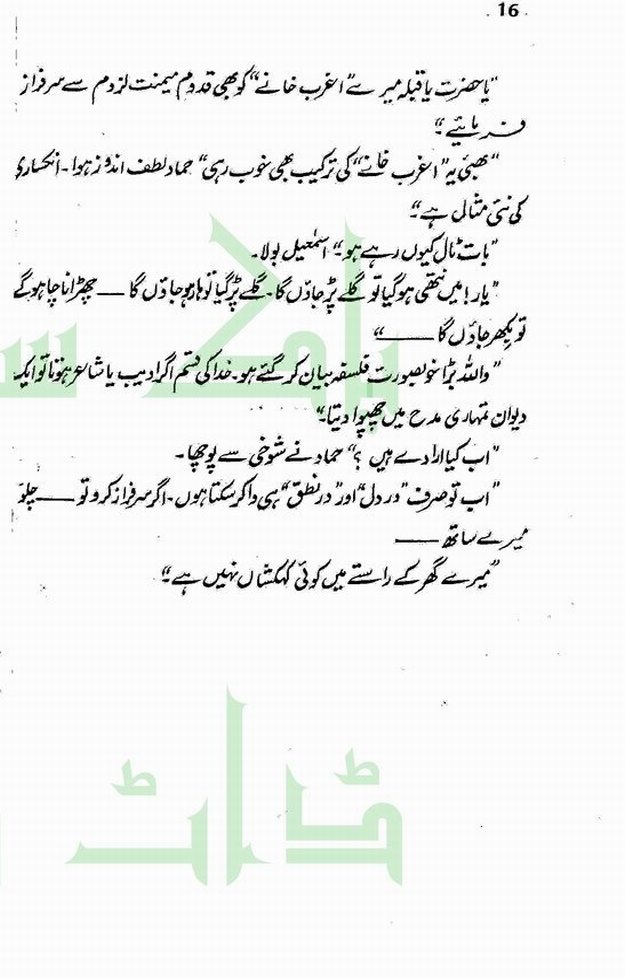 16
"یا حضرت یا قبلہ میرے "اغرب خانے" کو بھی قدوم میمنت لزوم سے سرفراز
فرمایئے۔"
"بھئی یہ "اغرب خانے" کی ترکیب بھی خوب رہی" حماد لطف اندوز ہوا۔ انکساری
کی نئی مثال ہے۔"
"بات ٹال کیوں رہے ہو۔" اسمٰعیل بولا۔
"یار! میں نتھی ہو گیا تو گلے پڑ جاؤں گا۔ گلے پڑ گیا تو ہار ہو جاؤں گا ــــ چھڑانا چاہو گے
تو بکھر جاؤں گا ــــ"
"واللہ بڑا خوبصورت فلسفہ بیان کر گئے ہو۔ خدا کی قسم اگر ادیب یا شاعر ہوتا تو ایک
دیوان تمہاری مدح میں چھپوا دیتا۔"
"اب کیا ارادے ہیں ؟" حماد نے شوخی سے پوچھا۔
"اب تو صرف "در دل" اور "در نطق" ہی وا کر سکتا ہوں۔ اگر سرفراز کرو تو ــــ چلو
میرے ساتھ ــــ
"میرے گھر کے راستے میں کوئی کہکشاں نہیں ہے۔"
پاک
ڈاٹ